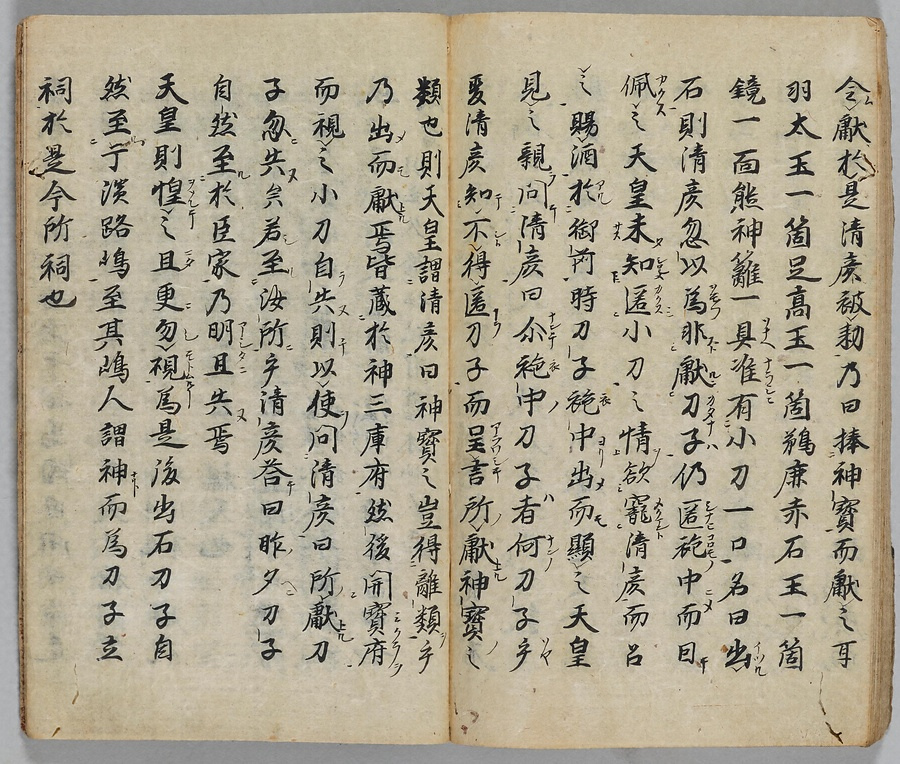 令献於是清彦被勅乃曰捧神寶而献之耳
羽太玉一箇足高玉一箇鵜鹿赤石玉一箇
鏡一面熊神籬一具唯有小刀一口名曰出
石則清彦忽以為非献刀子仍匿袍中而自
佩之天皇未知匿小刀之情欲寵清彦而召
之賜酒於御所時刀子袍中出而顕之天皇
見之親問清彦曰尒袍中刀子者何刀子乎
爰清彦知不得匿刀子而呈言所献神寶之
類也則天皇謂清彦曰神寶之豈得離類乎
乃出而献焉皆蔵於神三庫府然後開寶府
而視之小刀自失則以使問清彦曰所献刀
子忽失矣若至汝所乎清彦答曰昨夕刀子
自然至於臣家乃明旦失焉
天皇則惶之且更勿視為是後出石刀子自
然至于淡路嶋至其嶋人謂神而為刀子立
祠於是今所祠也